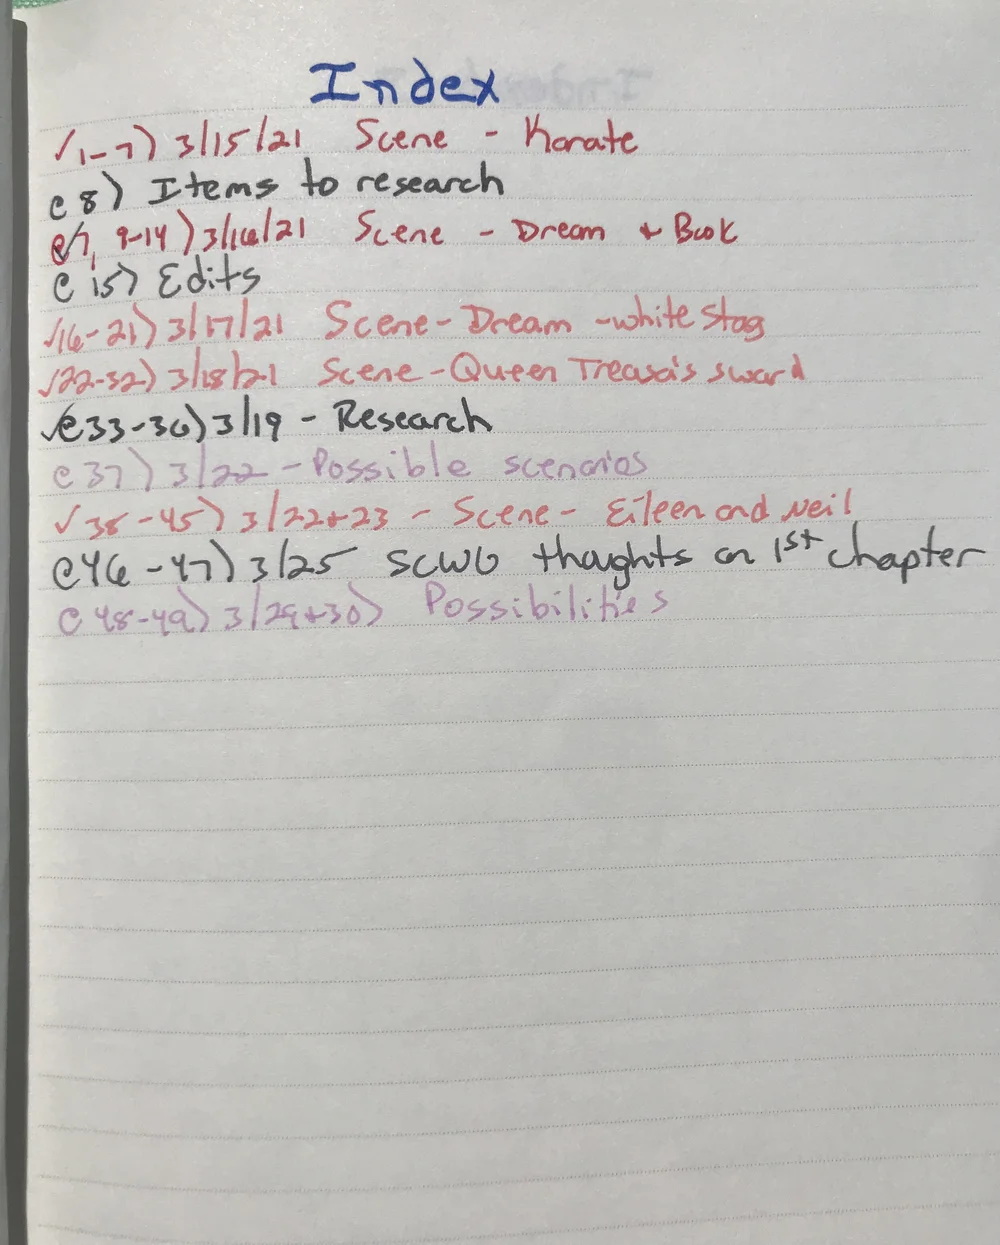 Index
√1-7) 3/15/21 Scene - Karate
e 8) Items to research
e/7, 9-14) 3/16/21 Scene - Dream + Book
e 15) Edits
√16-21) 3/17/21 Scene - Dream - white stag
√22-32) 3/18/21 Scene - Queen Treasa's sword
√e33-36) 3/19 - Research
e 37) 3/22 - Possible scenarios
√ 38-45) 3/22+23 - Scene - Eileen and Neil
e46-47) 3/25 SCWG thoughts on 1st chapter
e 48-49) 3/29+30) Possibilities